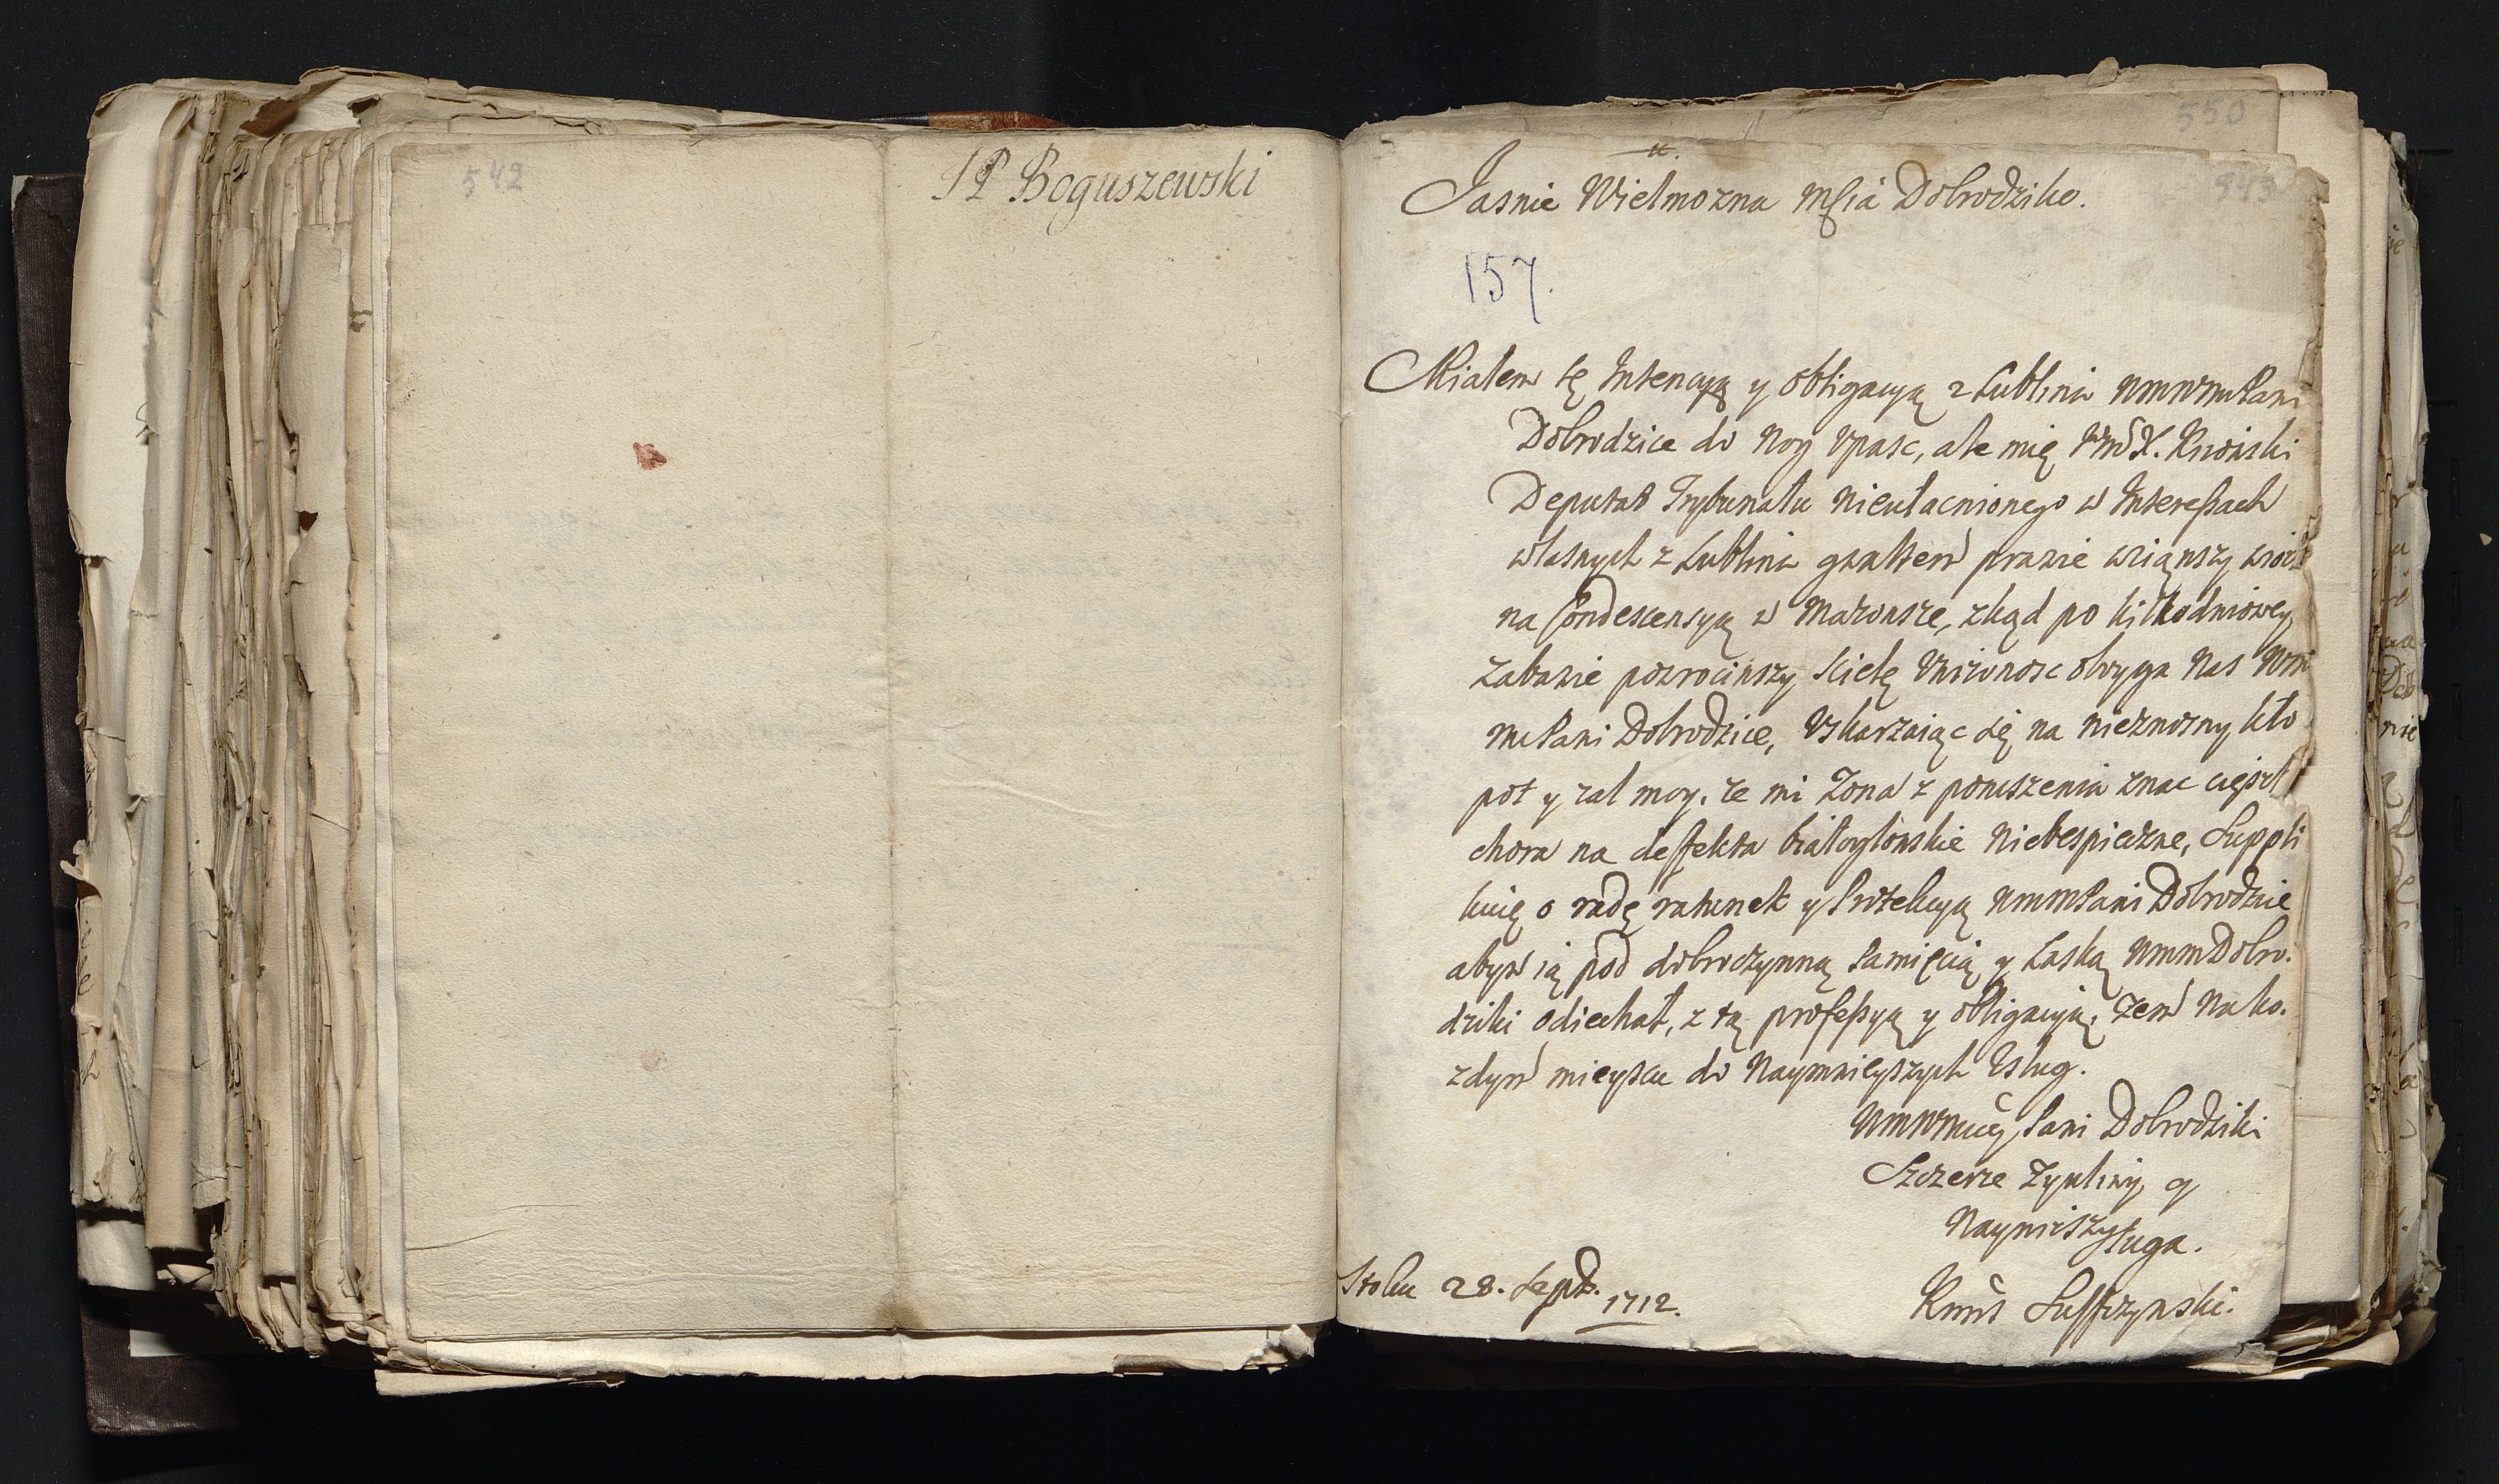 542
JP Boguszewski
550
543
Jasnie Wielmozna Mscia Dobrodziko.
157.
Miałem tę Intencyą y obligacyą z Lublina WMWMPani
Dobrodzice do Nog Upasc, ale mię
Deputat Trybunału nieułacnionego w Interessach
własnych z Lublina gwałtem prawie wziąwszy
na Condescensyą w Mazowsze, zkąd po kilkodniowey
zabawie powrociwszy scielę Unizonosc obvyga Nas WM
MPani Dobrodzice, Uskarzaiąc się na nieznosny kło
pot y zal moy. ze mi Zona z poruszenia znac cięszk
chora na deffekta białogłowskie Niebespieczne, Suppli
kuię o radę ratunek y Protekcyą WMMPani Dobrodzice
abym ią pod dobroczynną Pamięcią y Łaską WMMDobro.
dziki odiechał, z tą professyą y obligacyią, zem Na ko.
zdym mieyscu do Naymnieyszych Usług.
Pani Dobrodziki
Szczerze Zyczliwy y
Nayniszy sługa.
Stoku 28. Sept. 1712.
Suffczynski.